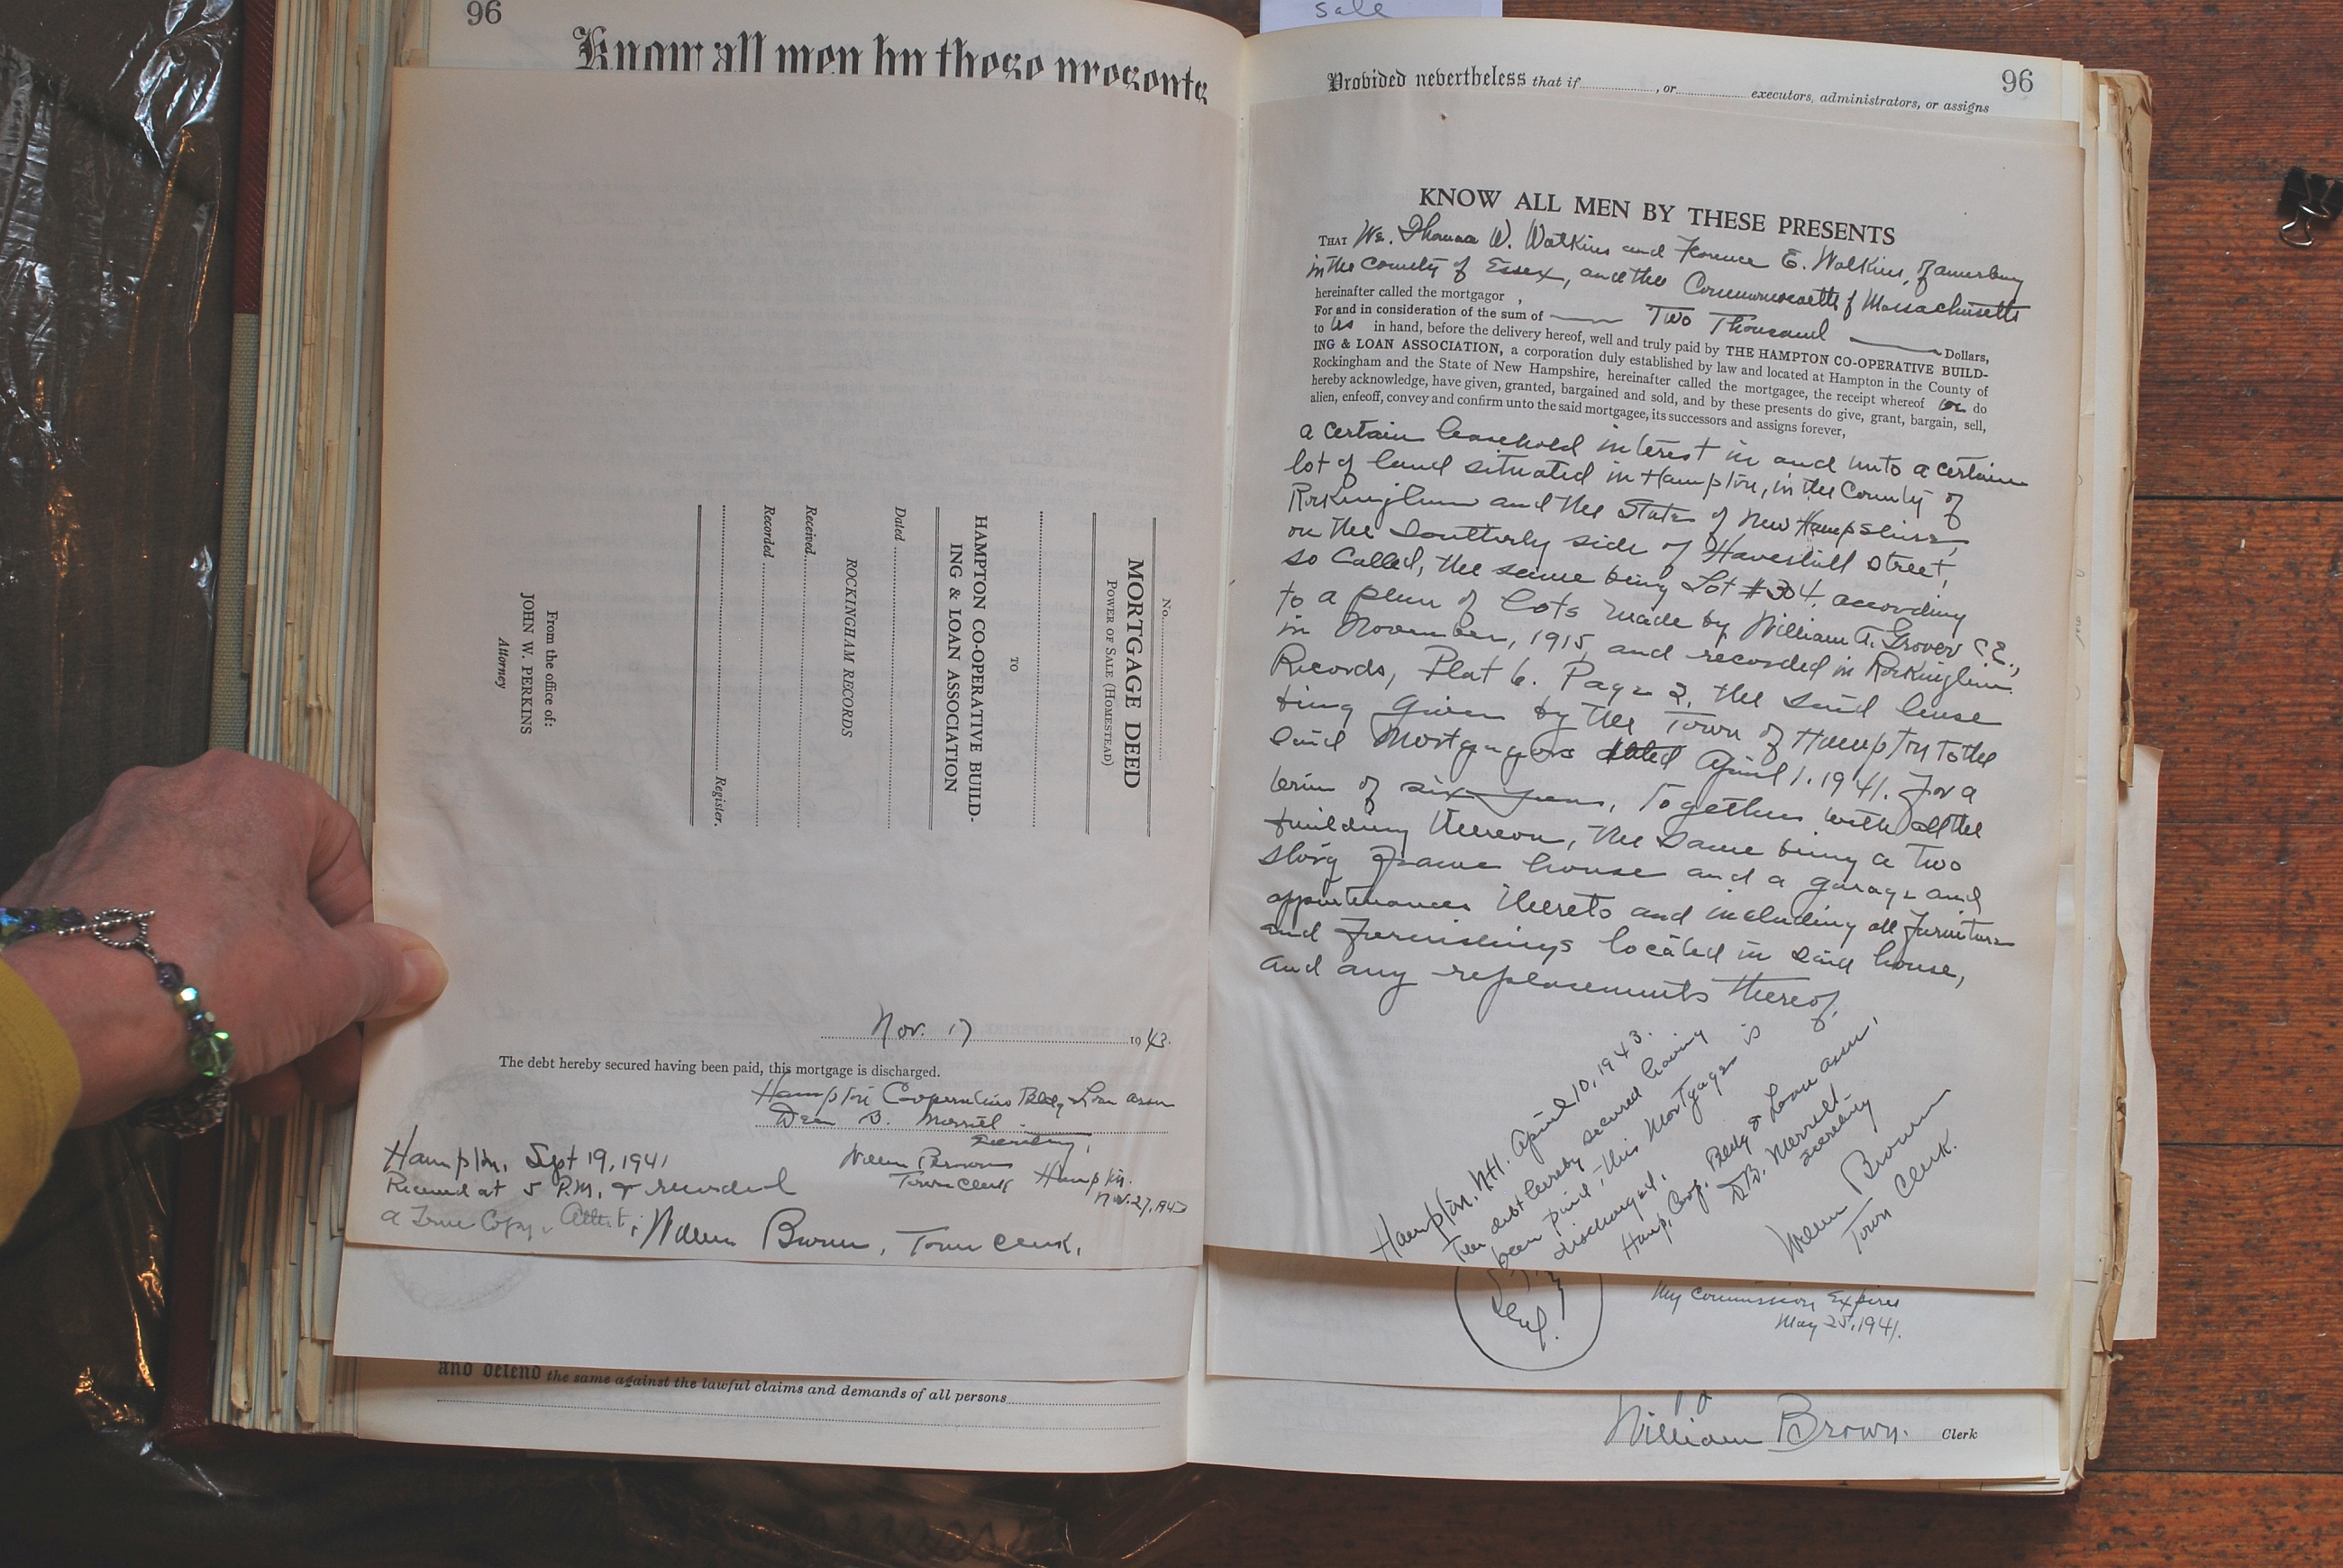 96
Know all men by these presents
MORTGAGE DEED
POWER OF SALE (HOMESTEAD)
No.
TO
HAMPTON CO-OPERATIVE BUILD-
ING & LOAN ASSOCIATION
Dated
ROCKINGHAM RECORDS
Received
Recorded
Register.
From the office of:
JOHN W. PERKINS
Attorney
Nov. 17 1943.
The debt hereby secured having been paid, this mortgage is discharged.
Hampton Cooperative Bldg & Loan Assn
Dean B. Merrill
Secretary,
William Brown
Town Clerk Hampton.
Nov. 27, 1943
Hampton, Sept 19, 1941
Received at 5 P.M. & recorded
A True Copy, Attest: William Brown, Town Clerk.
and defend the same against the lawful claims and demands of all persons
sale
96
Provided nevertheless that if , or executors, administrators, or assigns
KNOW ALL MEN BY THESE PRESENTS
THAT We, Thomas W. Watkins and Florence E. Watkins, of Amesbury
in the County of Essex, and the Commonwealth of Massachusetts
hereinafter called the mortgagor ,
For and in consideration of the sum of Two Thousand Dollars,
to us in hand, before the delivery hereof, well and truly paid by THE HAMPTON CO-OPERATIVE BUILD-
ING & LOAN ASSOCIATION, a corporation duly established by law and located at Hampton in the County of
Rockingham and the State of New Hampshire, hereinafter called the mortgagee, the receipt whereof we do
hereby acknowledge, have given, granted, bargained and sold, and by these presents do give, grant, bargain, sell,
alien, enfeoff, convey and confirm unto the said mortgagee, its successors and assigns forever,
a certain leasehold interest in and unto a certain
lot of land situated in Hampton, in the County of
Rockingham and the State of New Hampshire,
on the Southerly side of Haverhill Street,
so called, the same being Lot #304, according
to a plan of lots made by William A. Grover C.E.,
in November, 1915, and recorded in Rockingham
Records, Plat 6. Page 2, the said lease
being given by the Town of Hampton to the
said Mortgagors dated April 1. 1941. for a
term of six years, together with all the
building thereon, the same being a two
story frame house and a garage and
appurtenances thereto and including all furniture
and furnishings located in said house,
and any replacements thereof.
Hampton, N.H. April 10, 1943.
The debt hereby secured having
been paid, this Mortgage is
discharged.
Hamp. Coop. Bldg & Loan Assn,
D.B. Merrill
Secretary
William Brown
Town Clerk.
My Commission Expires
May 25, 1941.
William Brown. Clerk